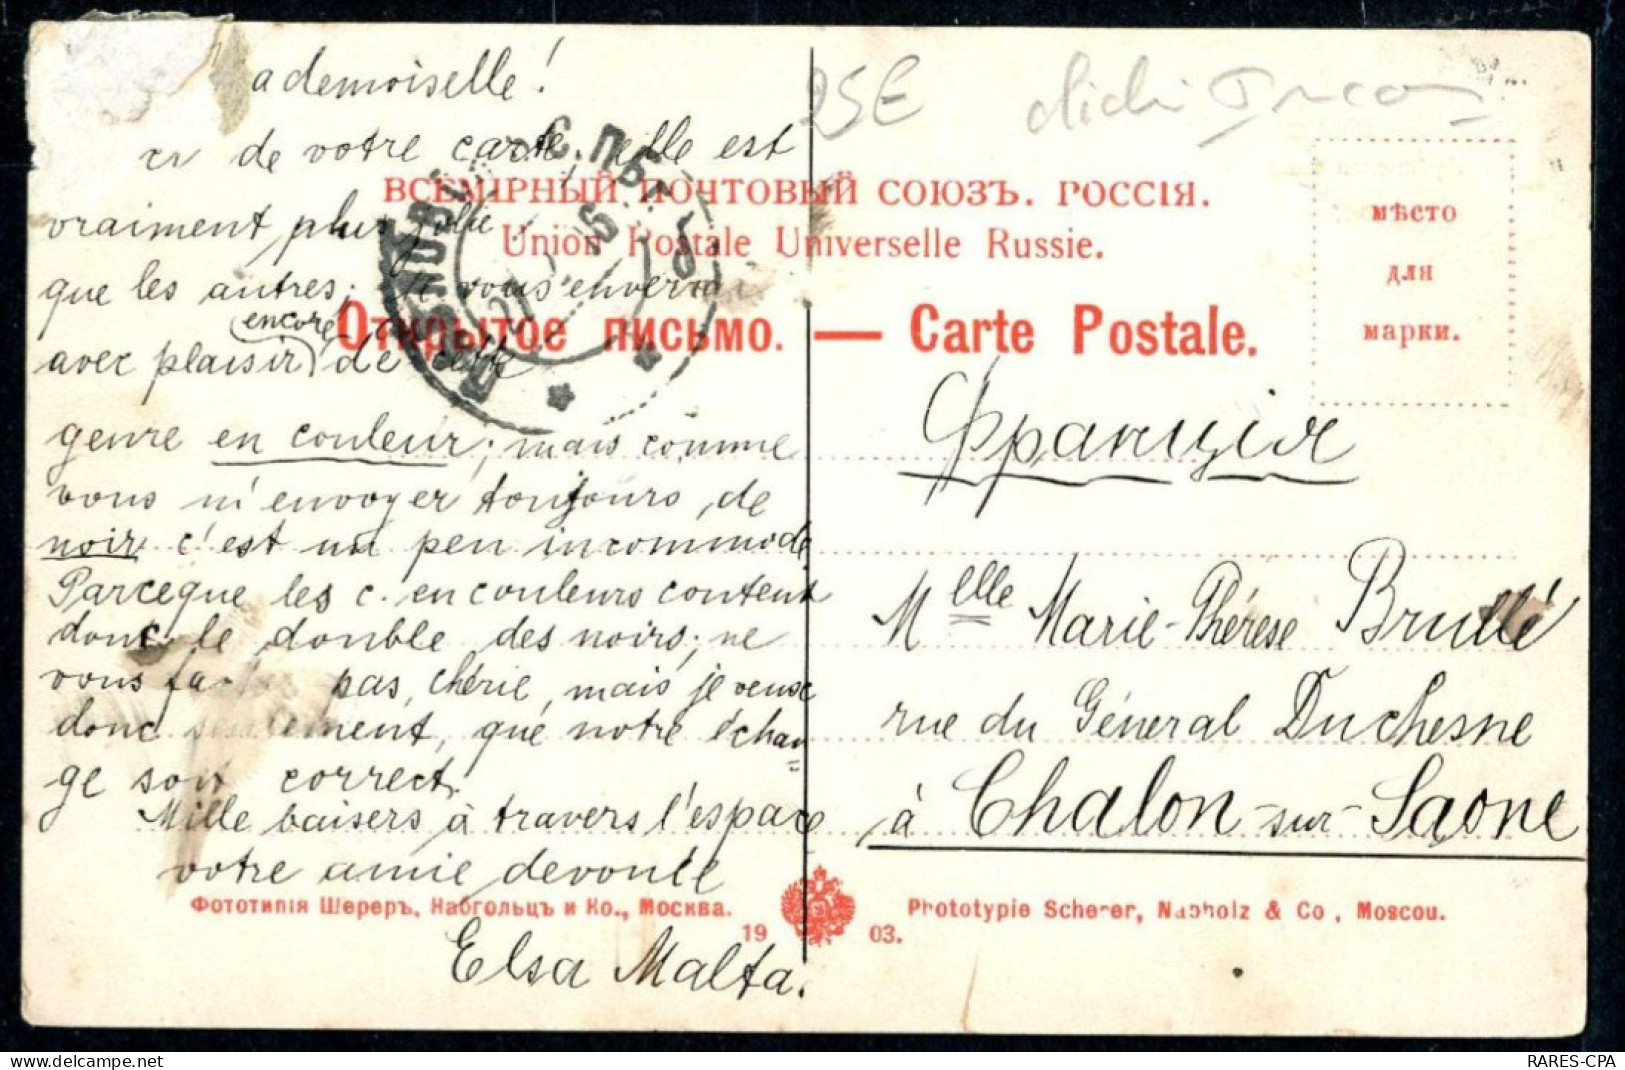 ademoiselle!
de votre carte, elle est
vraiment plus jolie
que les autres; je vous enverrai
encore
avec plaisir de cette
genre en couleur; mais comme
vous m'envoyer toujours, de
noir c'est un peu incommode
Parceque les c. en couleurs content
donc le double des noirs; ne
vous pas, chérie, mais je veuse
donc seulement, que notre échan
ge soit correct.
Mille baisers à travers l'espace
votre amie dévouée
Elsa Malta.
25€
ВСЕМІРНЫЙ ПОЧТОВЫЙ СОЮЗЪ. РОССІЯ.
Union Postale Universelle Russie.
Открытое письмо. — Carte Postale.
мѣсто
для
марки.
С.ПБГ
Франція
Melle Marie-Thérese Brullé
rue du Géneral Duchesne
à Chalon-sur-Saone
Фототипія Шереръ, Набгольцъ и Ко., Москва.
19 03.
Phototypie Scherer, Nabholz & Co, Moscou.
RARES-CPA